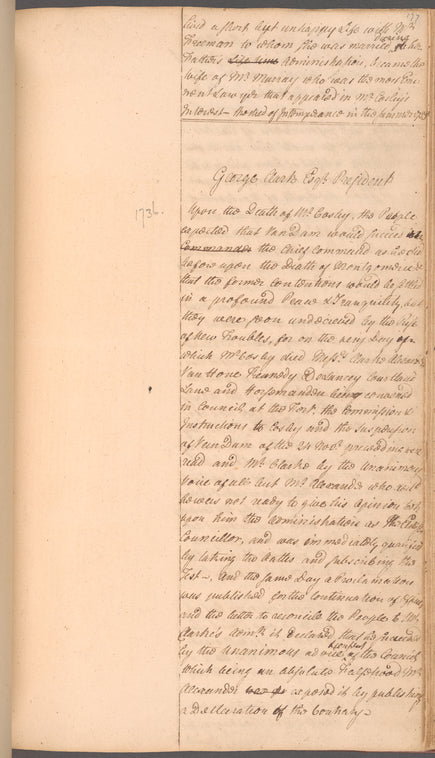 lived a short but unhappy Life with Mr.
Freeman to whom she was married during her
Fathers Life time Administration, became the
Wife of Mr. Murray who was the most Emi
nent Lawyer that appeared in Mr. Cosby's
Interest— He died of Intemperance in the summer
George Clarke Esqr. President
1736.
Upon the Death of Mr. Cosby, the People
expected that Van Dam would succeed
Commander the Chief Command as he did
before upon the Death of Montgomerie &
that the former contentions would be
in a profound Peace & Tranquility, but
they were soon undeceived by the Rise
of New Troubles, for on the very Day of
which Mr. Cosby died Messrs. Clarke Alexander
Van Horne Kennedy Delancey Courtland
Lane and Horsmanden being convened
in Council at the Fort, the Commission &
Instructions to Cosby and the Suspension
of Van Dam of the 24 Novr. preceding were
read and Mr. Clarke by the unanimous
Voice of all but Mr. Alexander who said
he was not ready to give his Opinion took
upon him the Administration as the Eldest
Councillor, and was immediately qualified
by taking the Oaths and subscribing the
Test—. And the same Day a Proclamation
was published for the Continuation of
and the better to reconcile the People to Mr.
Clarke's Admn. it declared that he
by the unanimous advice & consent of the Council
which being an absolute Falsehood Mr.
Alexander exposed it by publishing
a Declaration of the Contrary—